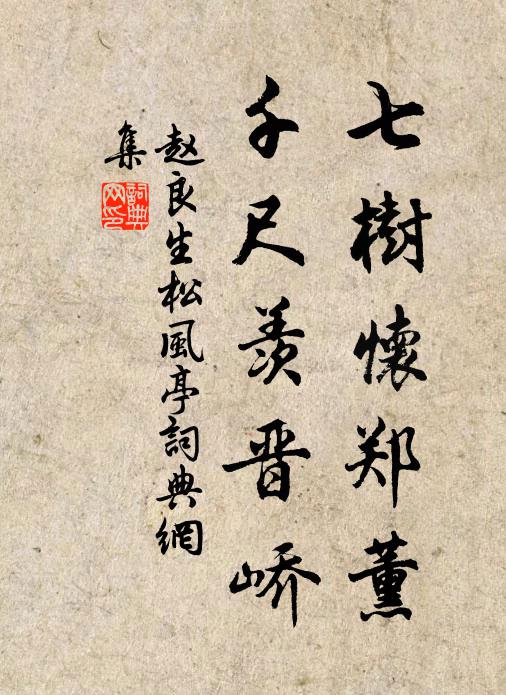 七樹懷郑薰
千尺羡晋峤
赵良生松風亭詞典網
集
詞典
网印